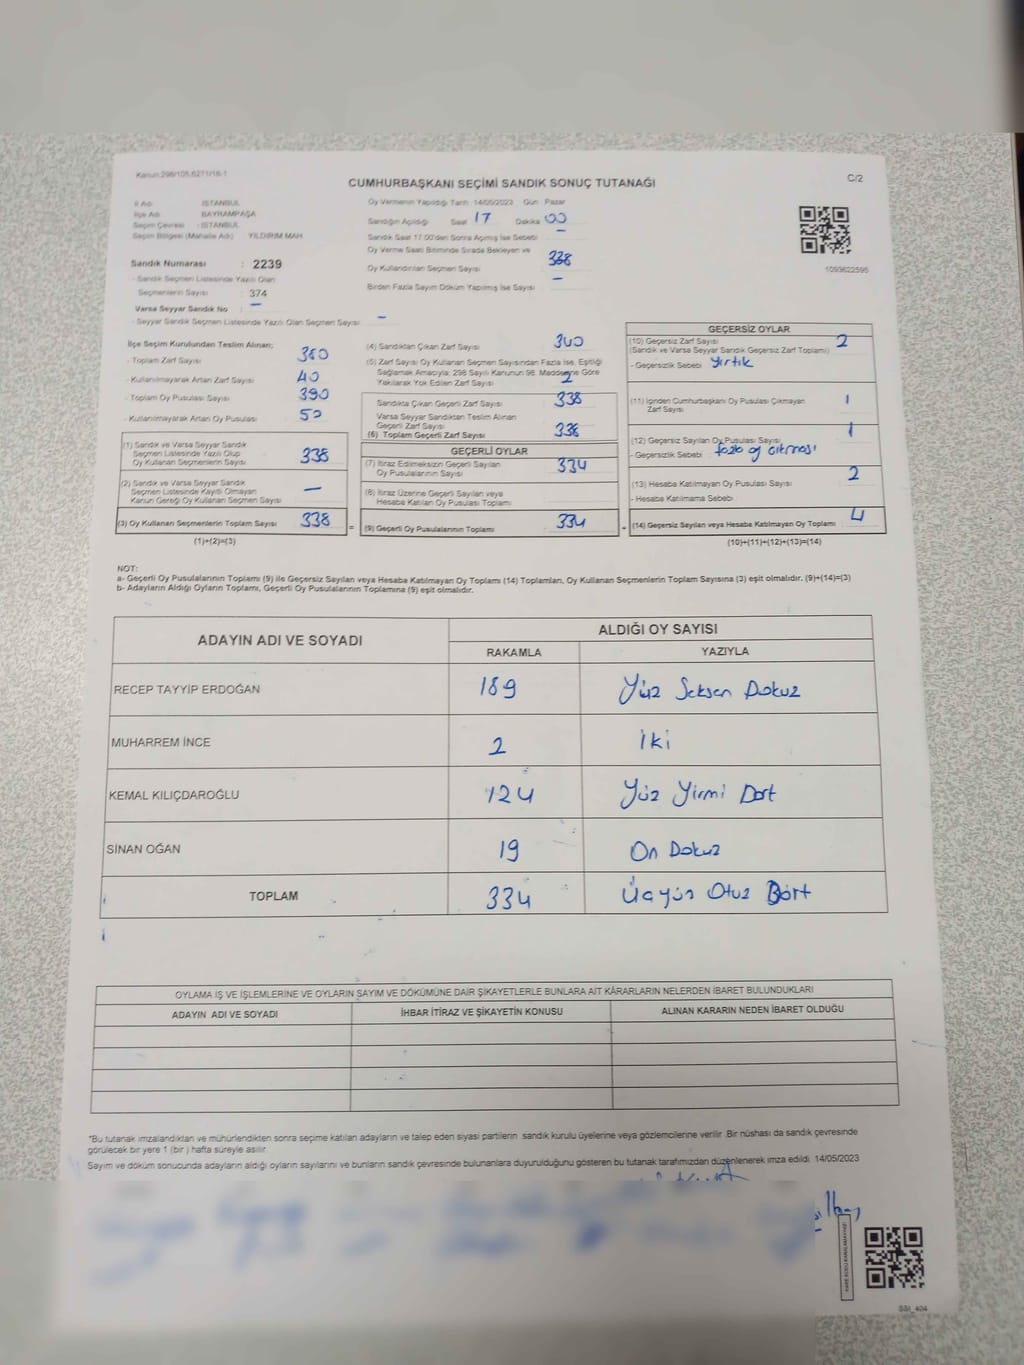 Kanun:298/105,6271/18-1
CUMHURBAŞKANI SEÇİMİ SANDIK SONUÇ TUTANAĞI
C/2
İl Adı : İSTANBUL
İlçe Adı : BAYRAMPAŞA
Seçim Çevresi : İSTANBUL
Seçim Bölgesi (Mahalle Adı) YILDIRIM MAH.
Sandık Numarası : 2239
- Sandık Seçmen Listesinde Yazılı Olan
Seçmenlerin Sayısı : 374
Varsa Seyyar Sandık No : -
- Seyyar Sandık Seçmen Listesinde Yazılı Olan Seçmen Sayısı: -
Oy Vermenin Yapıldığı Tarih :14/05/2023 Gün : Pazar
Sandığın Açıldığı Saat 17 Dakika 00
Sandık Saat 17:00'den Sonra Açılmış İse Sebebi -
Oy Verme Saati Bitiminde Sırada Bekleyen ve
Oy Kullandırılan Seçmen Sayısı 338
Birden Fazla Sayım Döküm Yapılmış İse Sayısı -
1093622595
İlçe Seçim Kurulundan Teslim Alınan;
- Toplam Zarf Sayısı 380
- Kullanılmayarak Artan Zarf Sayısı 40
- Toplam Oy Pusulası Sayısı 390
- Kullanılmayarak Artan Oy Pusulası 50
(1) Sandık ve Varsa Seyyar Sandık
Seçmen Listesinde Yazılı Olup
Oy Kullanan Seçmenlerin Sayısı 338
(2) Sandık ve Varsa Seyyar Sandık
Seçmen Listesinde Kayıtlı Olmayan
Kanun Gereği Oy Kullanan Seçmen Sayısı -
(3) Oy Kullanan Seçmenlerin Toplam Sayısı 338
(1)+(2)=(3)
(4) Sandıktan Çıkan Zarf Sayısı 340
(5) Zarf Sayısı Oy Kullanan Seçmen Sayısından Fazla İse, Eşitliği
Sağlamak Amacıyla; 298 Sayılı Kanunun 98. Maddesine Göre
Yakılarak Yok Edilen Zarf Sayısı 2
Sandıkta Çıkan Geçerli Zarf Sayısı 338
Varsa Seyyar Sandıktan Teslim Alınan
Geçerli Zarf Sayısı
(6) Toplam Geçerli Zarf Sayısı 338
GEÇERLİ OYLAR
(7) İtiraz Edilmeksizin Geçerli Sayılan
Oy Pusulalarının Sayısı 334
(8) İtiraz Üzerine Geçerli Sayılan veya
Hesaba Katılan Oy Pusulası Toplamı
= (9) Geçerli Oy Pusulalarının Toplamı 334
GEÇERSİZ OYLAR
(10) Geçersiz Zarf Sayısı 2
(Sandık ve Varsa Seyyar Sandık Geçersiz Zarf Toplamı)
- Geçersizlik Sebebi yırtık
(11) İçinden Cumhurbaşkanı Oy Pusulası Çıkmayan
Zarf Sayısı 1
(12) Geçersiz Sayılan Oy Pusulası Sayısı 1
- Geçersizlik Sebebi fazla oy çıkması
(13) Hesaba Katılmayan Oy Pusulası Sayısı 2
- Hesaba Katılmama Sebebi
+ (14) Geçersiz Sayılan veya Hesaba Katılmayan Oy Toplamı 4
(10)+(11)+(12)+(13)=(14)
NOT:
a- Geçerli Oy Pusulalarının Toplamı (9) ile Geçersiz Sayılan veya Hesaba Katılmayan Oy Toplamı (14) Toplamları, Oy Kullanan Seçmenlerin Toplam Sayısına (3) eşit olmalıdır. (9)+(14)=(3)
b- Adayların Aldığı Oyların Toplamı, Geçerli Oy Pusulalarının Toplamına (9) eşit olmalıdır.
ADAYIN ADI VE SOYADI ALDIĞI OY SAYISI
RAKAMLA YAZIYLA
RECEP TAYYİP ERDOĞAN 189 Yüz Seksen Dokuz
MUHARREM İNCE 2 İki
KEMAL KILIÇDAROĞLU 124 Yüz Yirmi Dört
SİNAN OĞAN 19 On Dokuz
TOPLAM 334 Üçyüz Otuz Dört
OYLAMA İŞ VE İŞLEMLERİNE VE OYLARIN SAYIM VE DÖKÜMÜNE DAİR ŞİKAYETLERLE BUNLARA AİT KARARLARIN NELERDEN İBARET BULUNDUKLARI
ADAYIN ADI VE SOYADI İHBAR İTİRAZ VE ŞİKAYETİN KONUSU ALINAN KARARIN NEDEN İBARET OLDUĞU
*Bu tutanak imzalandıktan ve mühürlendikten sonra seçime katılan adayların ve talep eden siyasi partilerin sandık kurulu üyelerine veya gözlemcilerine verilir. Bir nüshası da sandık çevresinde
görülecek bir yere 1 (bir ) hafta süreyle asılır.
Sayım ve döküm sonucunda adayların aldığı oyların sayılarını ve bunların sandık çevresinde bulunanlara duyurulduğunu gösteren bu tutanak tarafımızdan düzenlenerek imza edildi. 14/05/2023
SSI_404